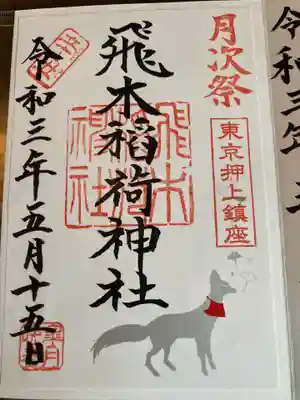 月次祭
東京押上鎮座
飛木稲荷神社
飛木
稲荷
神社
令和三年五月十五日